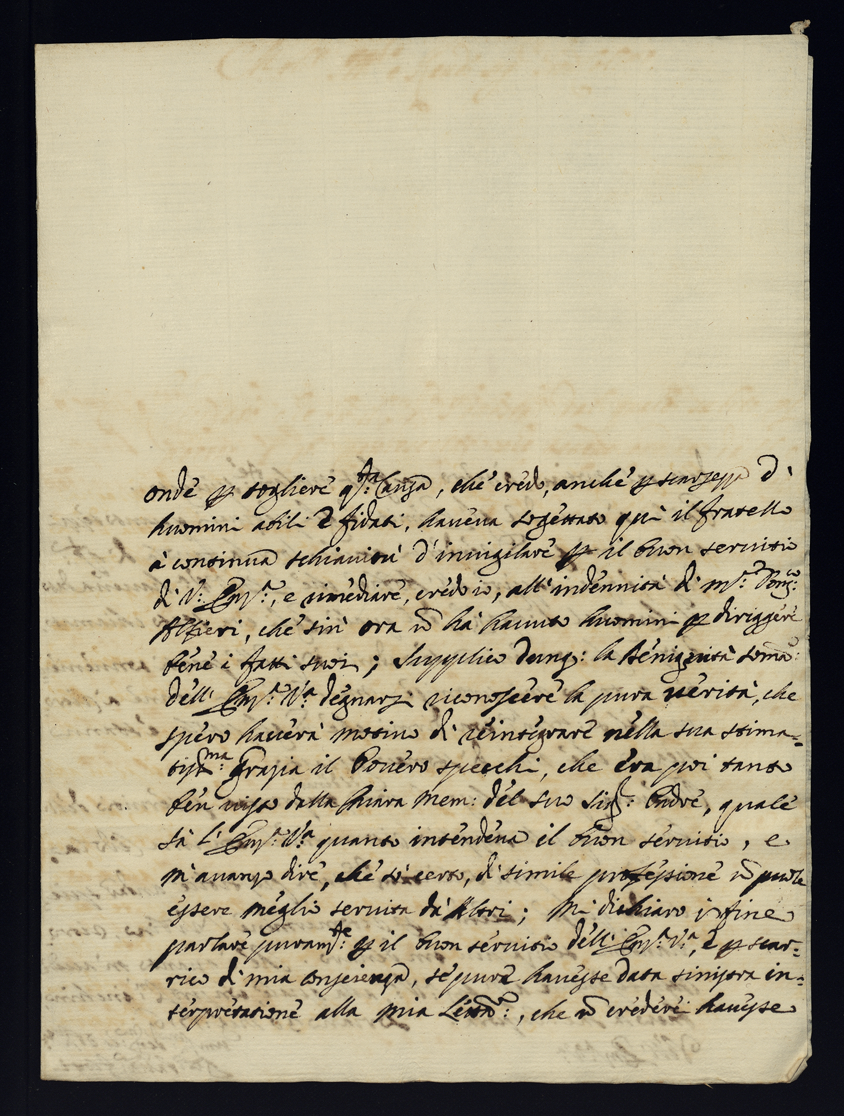 onde p togliere q.sta Causa, che credo, anche p scarsezza d'
huomini abili e fidati, haueua sogettato quì il fratello
à continua schiauitù d'inuigilare p il buon seruitio
di V: Em.a, e rimediare, cred'io, all'indennità di m.r Dom.co
Alfieri, che sin' ora nō hà hauuto huomini p diriggere
bene i fatti suoi; Supplico dunq: la Benignità som̄a:
dell' Em.a V.a degnarsi riconoscere la pura uerità, che
spero hauerà motiuo di reintegrare nella sua stima-
tiss.ma grazia il Pouero specchi, che era poi tanto
ben uisto dalla Chiara Mem: del suo Sig.r Padre, quale
sà l'Em.a V.a quanto intendeua il buon seruitio, e
m'auanzo dire, che sò certo, di simile professione nō puole
essere meglio seruita da Altri; Mi dichiaro in fine
parlare puram.te p il buon seruitio dell' Em.a V.a, e p scar-
rico di mia Conscienza, se pure hauesse data sinistra in-
terpretatione alla mia Lettā:, che nō crederei hauesse